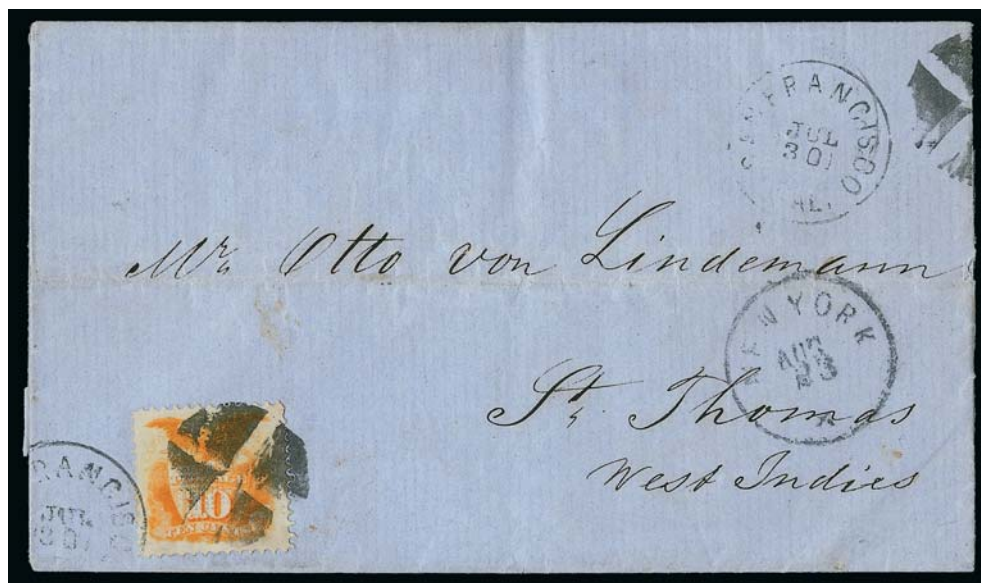 SAN FRANCISCO
JUL
30
CAL.
Mr. Otto von Lindemann
NEW YORK
AUG
St. Thomas
West Indies
RANCIS
JUL
30
10